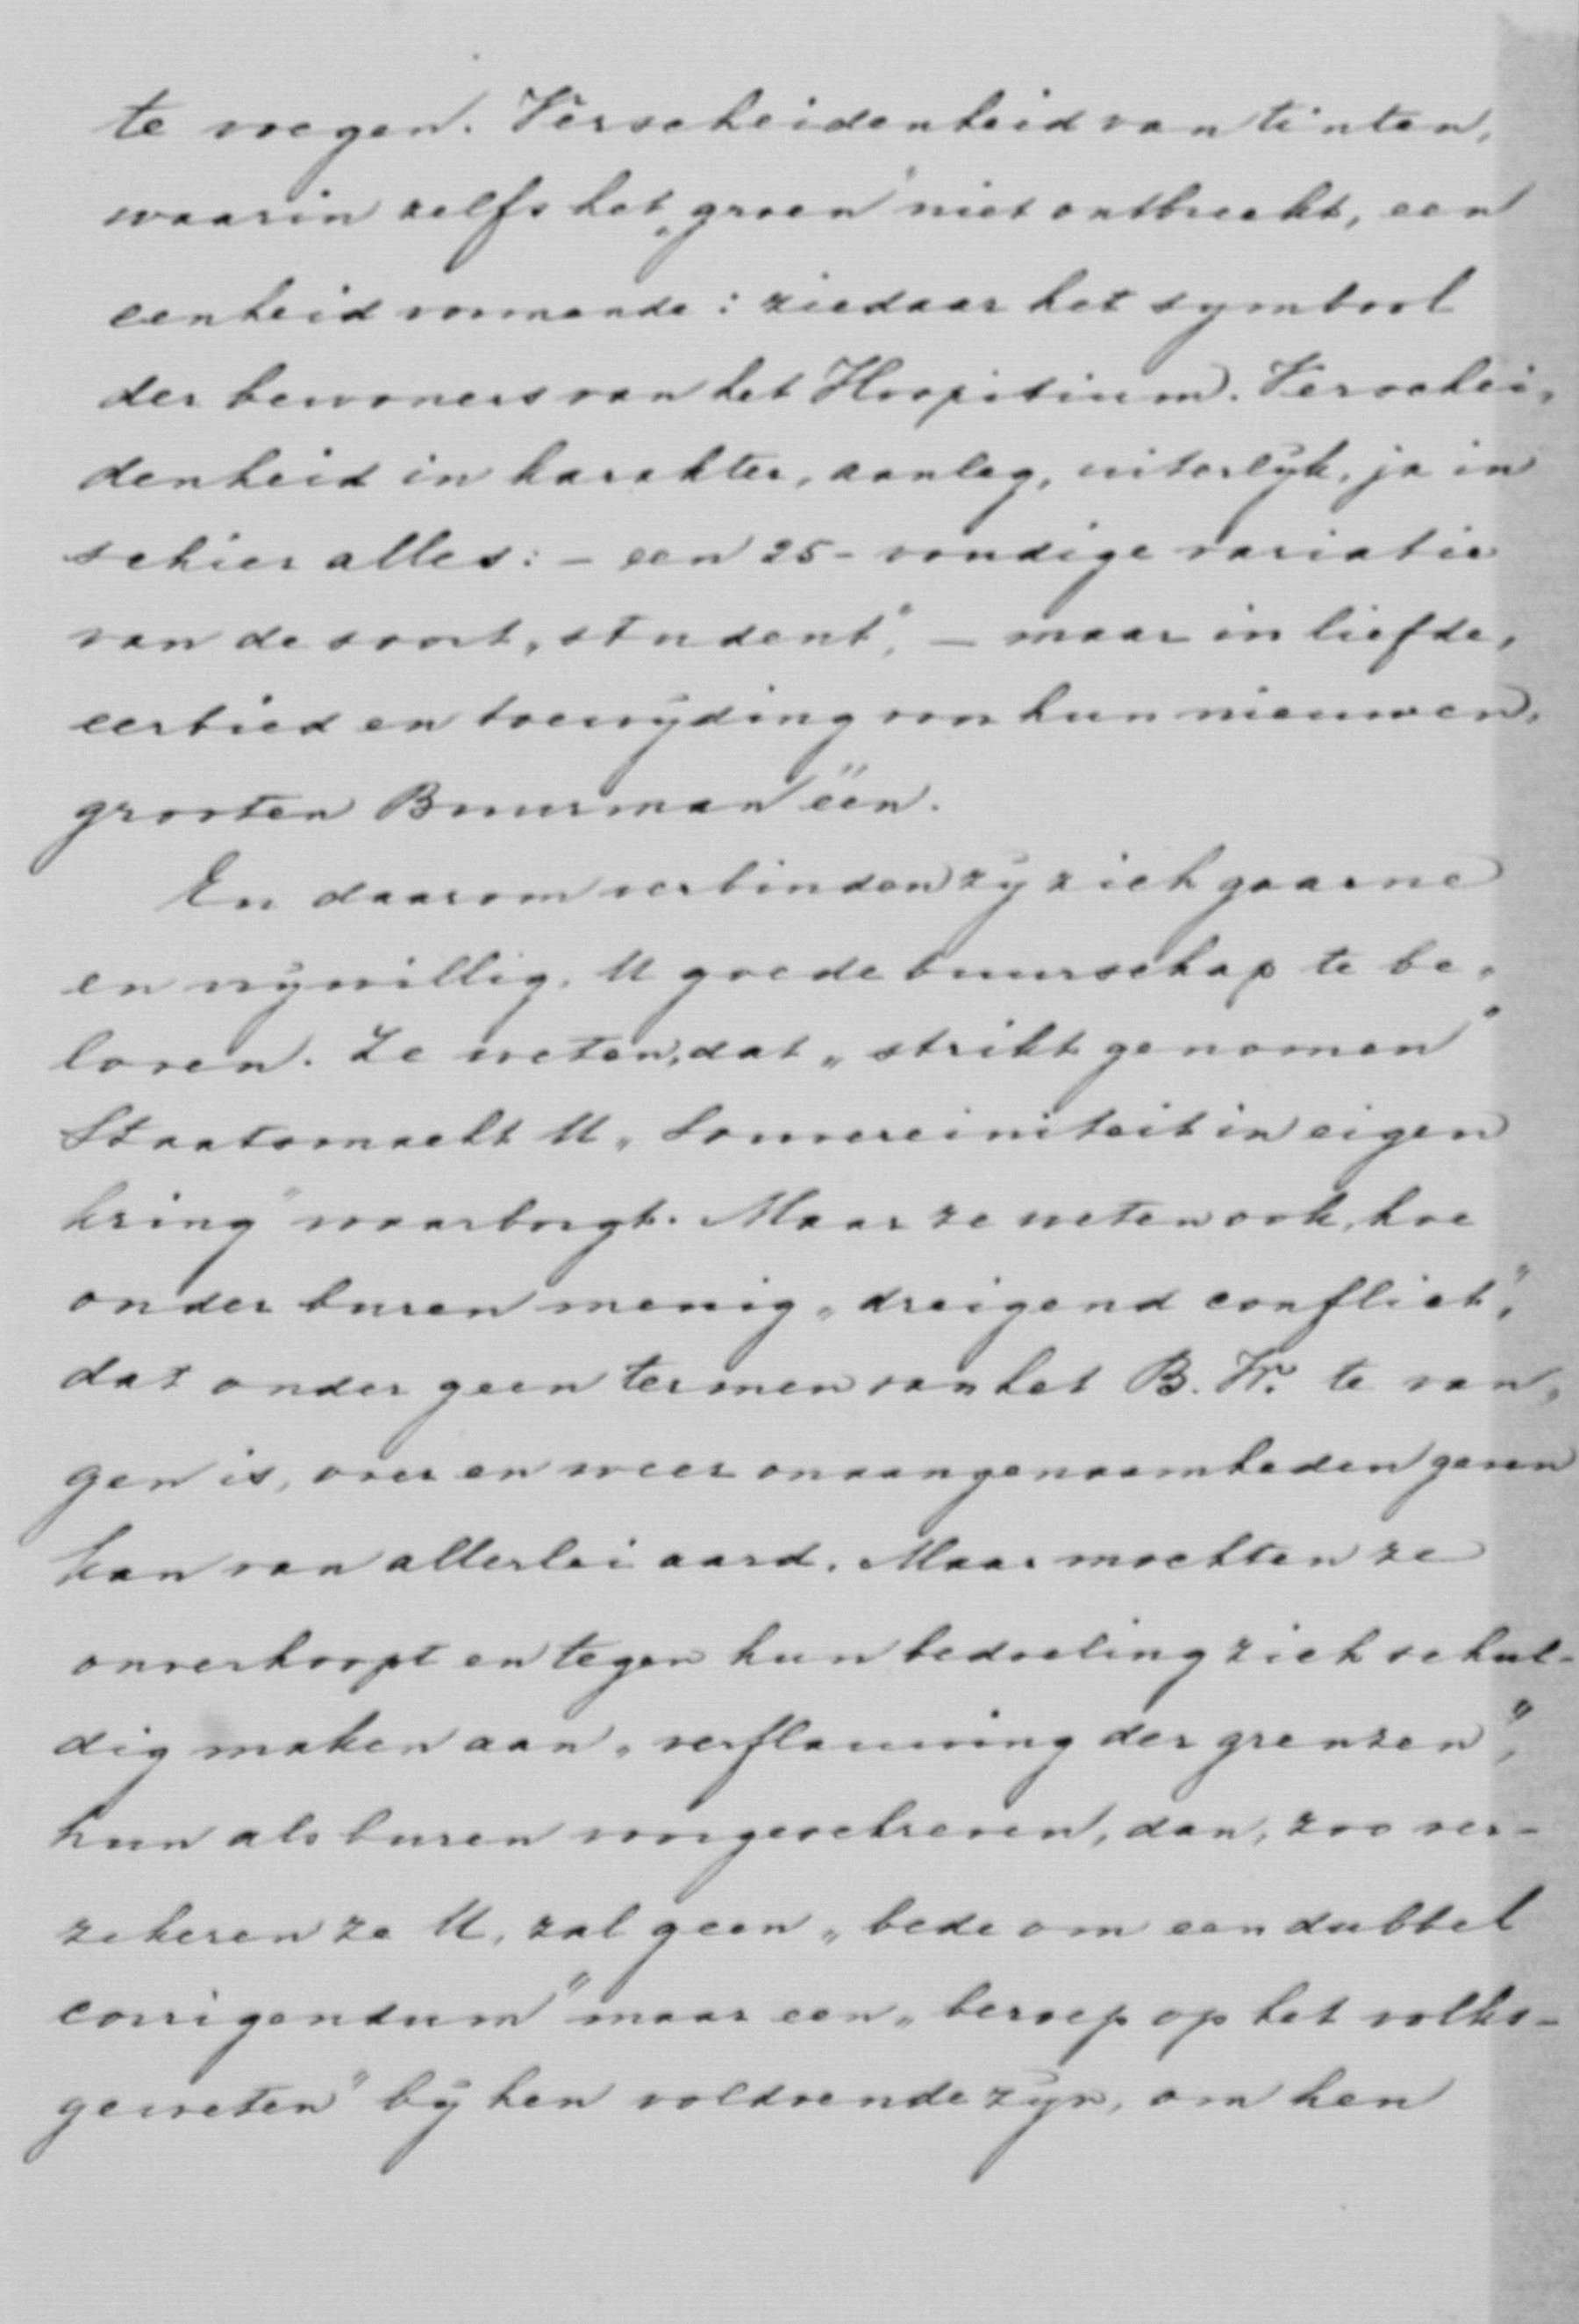 te voegen. Verscheidenheid van tinten,
waarin zelfs het „groen" niet ontbreekt, een
eenheid vormende: ziedaar het symbool
der bewoners van het Hospitium. Verschei-
denheid in karakter, aanleg, uiterlijk, ja in
schier alles: – een 25-voudige variatie
van de soort „student", – maar in liefde,
eerbied en toewijding van hun nieuwen,
grooten Buurman één.
En daarom verbinden zij zich gaarne
en vrijwillig, U goede buurschap te be-
loven. Ze weten, dat „strikt genomen"
Staatsmacht U „Souvereiniteit in eigen
kring" waarborgt. Maar ze weten ook, hoe
onder buren menig „dreigend conflict",
dat onder geen termen van het B.W. te van-
gen is, over en weer onaangenaamheden geven
kan van allerlei aard. Maar mochten ze
onverhoopt en tegen hun bedoeling zich schul-
dig maken aan „verflauwing der grenzen",
hun als buren voorgeschreven, dan, zoo ver-
zekeren ze U, zal geen „bede om een dubbel
corrigendum" maar een „beroep op het volks-
geweten" bij hen voldoende zijn, om hen